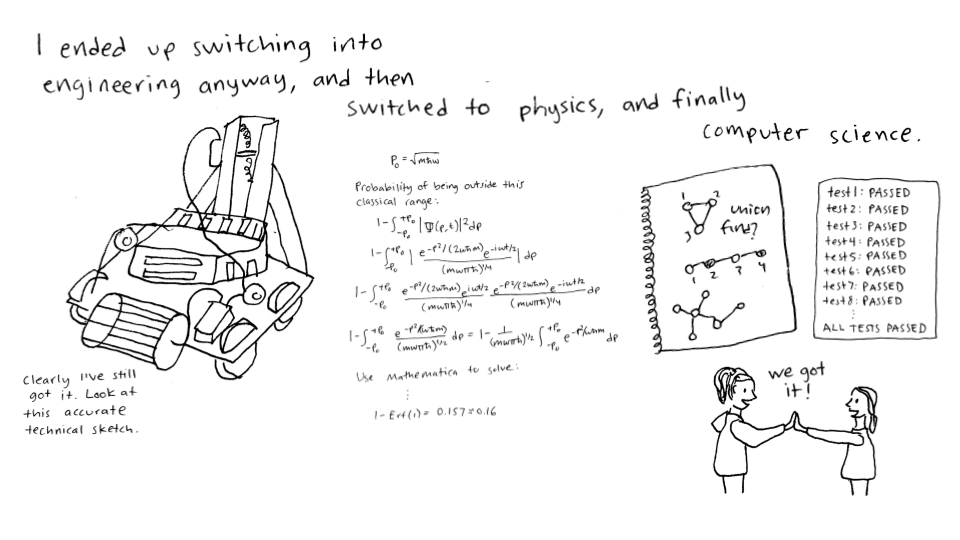 I ended up switching into
engineering anyway, and then
switched to physics, and finally
computer science.
Clearly I've still
got it. Look at
this accurate
technical sketch.
P₀ = √mħω
Probability of being outside this
classical range:
1-∫₋ₚ₀⁺ᴾ⁰ |Ψ(p,t)|²dp
1-∫₋ₚ₀⁺ᴾ⁰ | e^(-p²/(2ωħm)) e^(-iωt/2) / (mωπħ)^(1/4) | dp
1-∫₋ₚ₀⁺ᴾ⁰ e^(-p²/(2ωħm)) e^(iωt/2) / (mωπħ)^(1/4) e^(-p²/(2ωħm)) e^(-iωt/2) / (mωπħ)^(1/4) dp
1-∫₋ₚ₀⁺ᴾ⁰ e^(-p²/ωħm) / (mωπħ)^(1/2) dp = 1- 1/(mωπħ)^(1/2) ∫₋ₚ₀⁺ᴾ⁰ e^(-p²/ωħm) dp
Use Mathematica to solve:
⋮
1-Erf(1) = 0.157≈0.16
1 2
3
union
find?
1 2 3 4
test1: PASSED
test2: PASSED
test3: PASSED
test4: PASSED
test5: PASSED
test6: PASSED
test7: PASSED
test8: PASSED
⋮
ALL TESTS PASSED
we got
it!